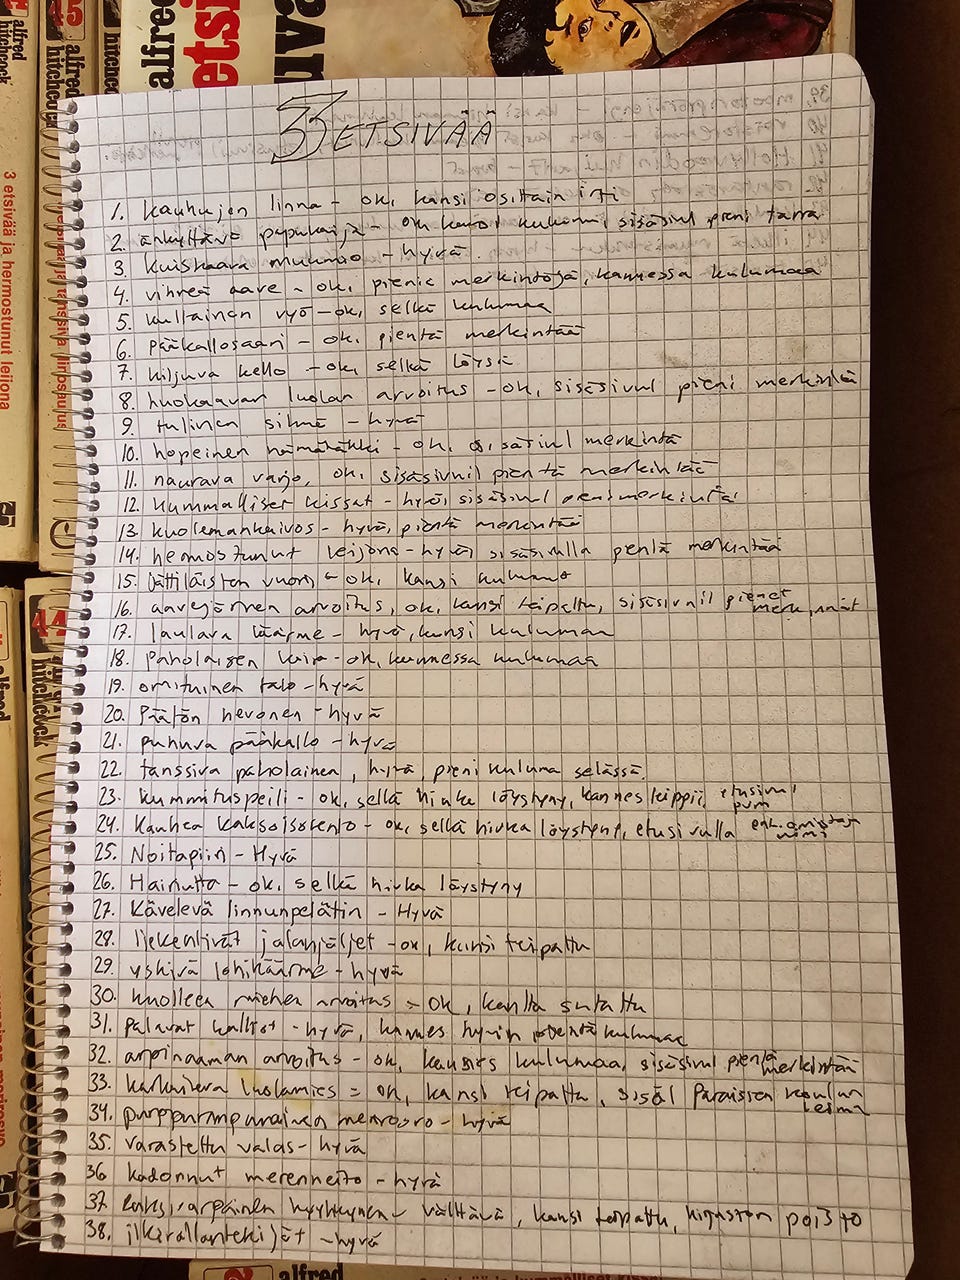 alfred
hitchcock
45
alfred
hitchcock
alfred
etsi
3 etsivää ja hermostunut leijona
44
hitchcock
33 ETSIVÄÄ
1. kauhujen linna - ok, kansi ositain irti
2. änkyttävä papukaija - ok kansi kulunu, sisäsivul pieni tarra
3. kuiskaava muumio - hyvä
4. vihreä aave - ok, pieniä merkintöjä, kannessa kulumaa
5. kultainen vyö - ok, selkä kulumaa
6. pääkallosaari - ok, pientä merkintää
7. kiljuva kello - ok, selkä löysä
8. huokaavan luolan arvoitus - ok, sisäsivul pieni merkintä
9. tulinen silmä - hyvä
10. hopeinen hämähäkki - ok, sisäsivul merkintä
11. naurava varjo, ok, sisäsivuil pientä merkintää
12. kummalliset kissat - hyvä, sisäsivul pieni merkintä
13. kuolemankaivos - hyvä, pientä merkintää
14. hermostunut leijona - hyvä, sisäsivulla pientä merkintää
15. jättiläisten vuori - ok, kansi kulunut
16. aavejärven arvoitus, ok, kansi teipattu, sisäsivuil pienet merkinnät
17. laulava käärme - hyvä, kansi kuluman
18. Paholaisen koira - ok, kannessa kulumaa
19. omituinen talo - hyvä
20. Päätön hevonen - hyvä
21. puhuva pääkallo - hyvä
22. tanssiva paholainen, hyvä, pieni kuluma selässä
23. kummituspeili - ok, selkä hiuka löystyny, kannes teippii, etusivul
24. Kauhea kaksoisolento - ok, selkä hiuka löystyny, etusivulla ent. omistaja nimi
25. Noitapiiri - Hyvä
26. Hainutta - ok, selkä hiuka löystyny
27. Kävelevä linnunpelätin - Hyvä
28. liekehtivät jalanjäljet - ok, kansi teipattu
29. yskivä lohikäärme - hyvä
30. kuolleen miehen arvoitus - ok,
31. palavat kalliot - hyvä, kannes hyvin pientä kulumaa
32. arpinaaman arvoitus - ok, kannes kulumaa, sisäsivul pientä merkintää
33. karkaileva luolamies - ok, kansi teipattu, sisäl Paraisten koulun leima
34. purppuranpunainen merirosvo - hyvä
35. varastettu valas - hyvä
36 kadonnut merenneito - hyvä
37. kaksivarpainen hyyhkynen - välttävä, kansi teipattu, kirjaston poisto
38. ilkivallantekijät - hyvä
alfred